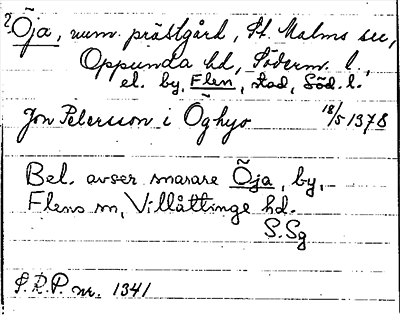 ? Öja, num. prästgård, St. Malms sn,
Oppunda hd, Söderm. l.,
el. by, Flen, stad, Söd. l.
Jon Petersson i Öghyo 18/5 1378
Bel. avser snarare Öja, by,
Flens sn, Villåttinge hd.
S.Sg
S.R.P. nr. 1341